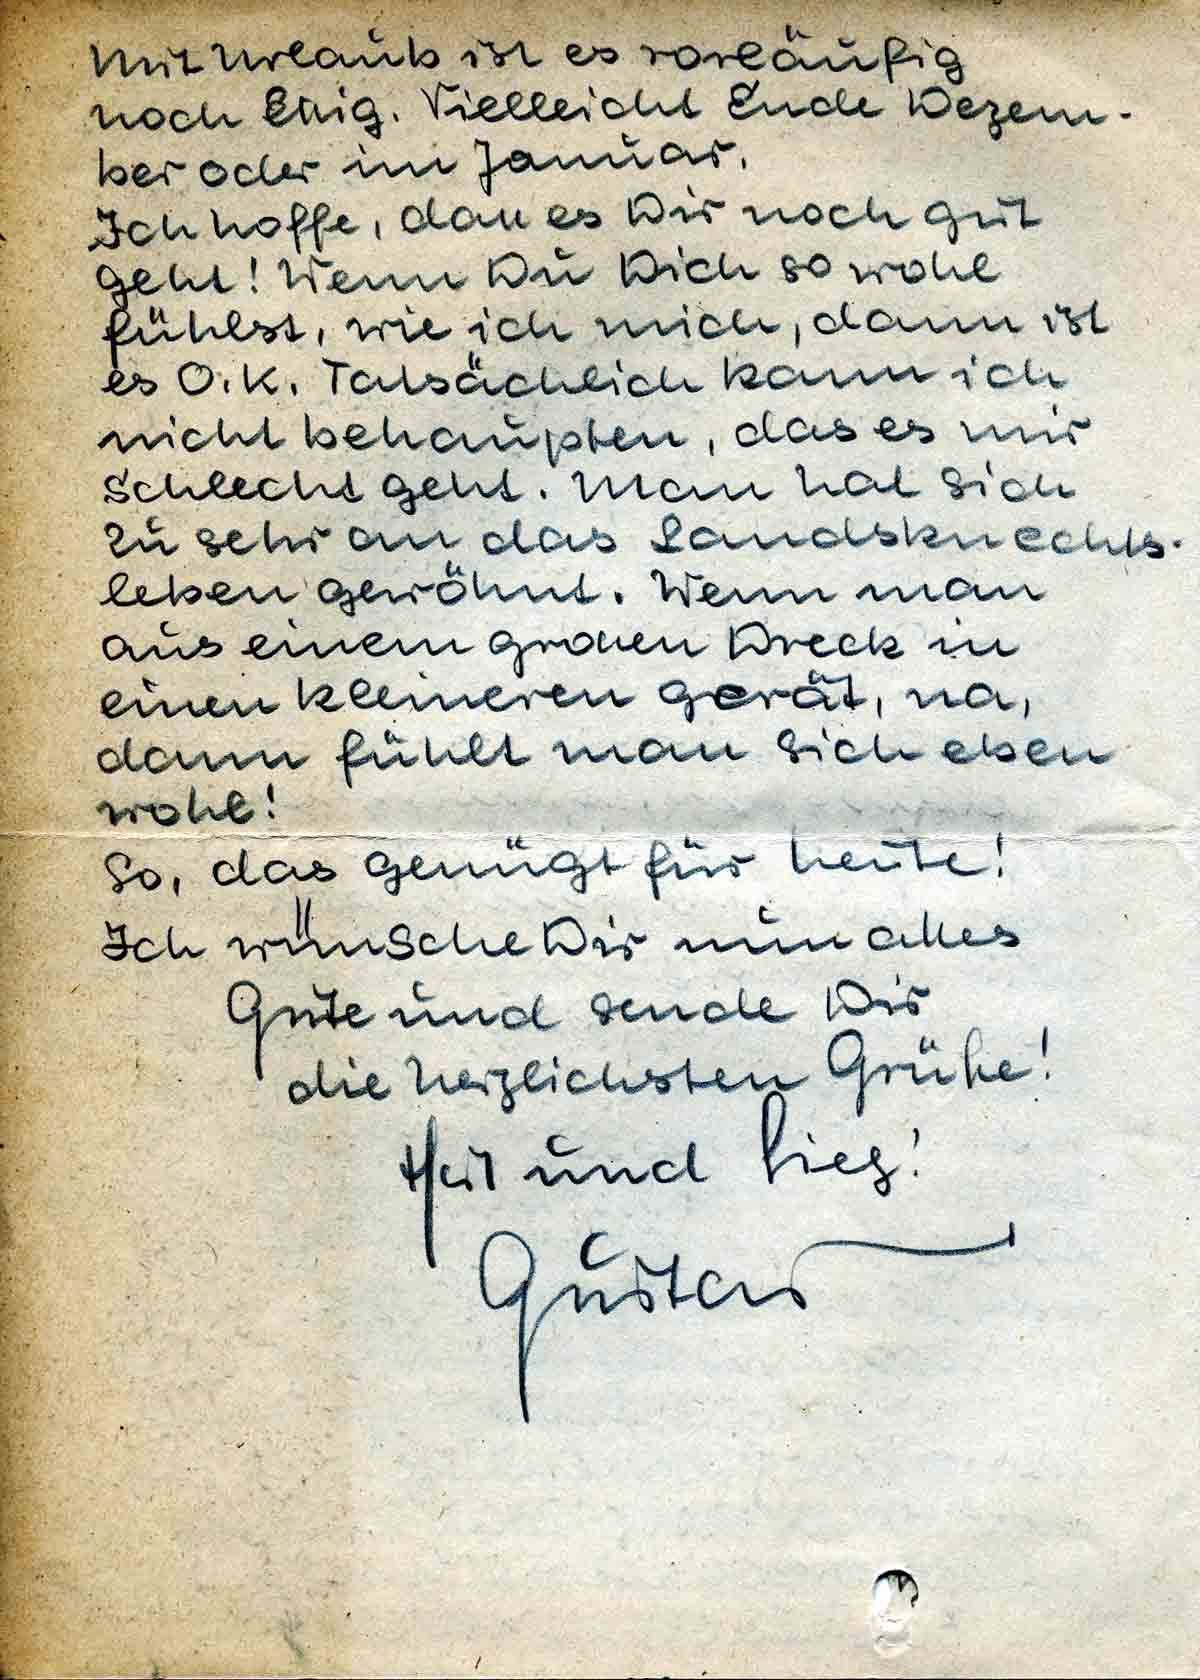 Mit Urlaub ist es vorläufig
noch Essig. Vielleicht Ende Dezem-
ber oder im Januar.
Ich hoffe, dass es Dir noch gut
geht! Wenn Du Dich so wohl
fühlst, wie ich mich, dann ist
es O.K. Tatsächlich kann ich
nicht behaupten, das es mir
schlecht geht. Man hat sich
zu sehr an das Landsknechts-
leben gewöhnt. Wenn man
aus einem grossen Dreck in
einen kleineren gerät, na,
dann fühlt man sich eben
wohl!
So, das genügt für heute!
Ich wünsche Dir nun alles
Gute und sende Dir
die herzlichsten Grüße!
Heil und Sieg!
Gustav